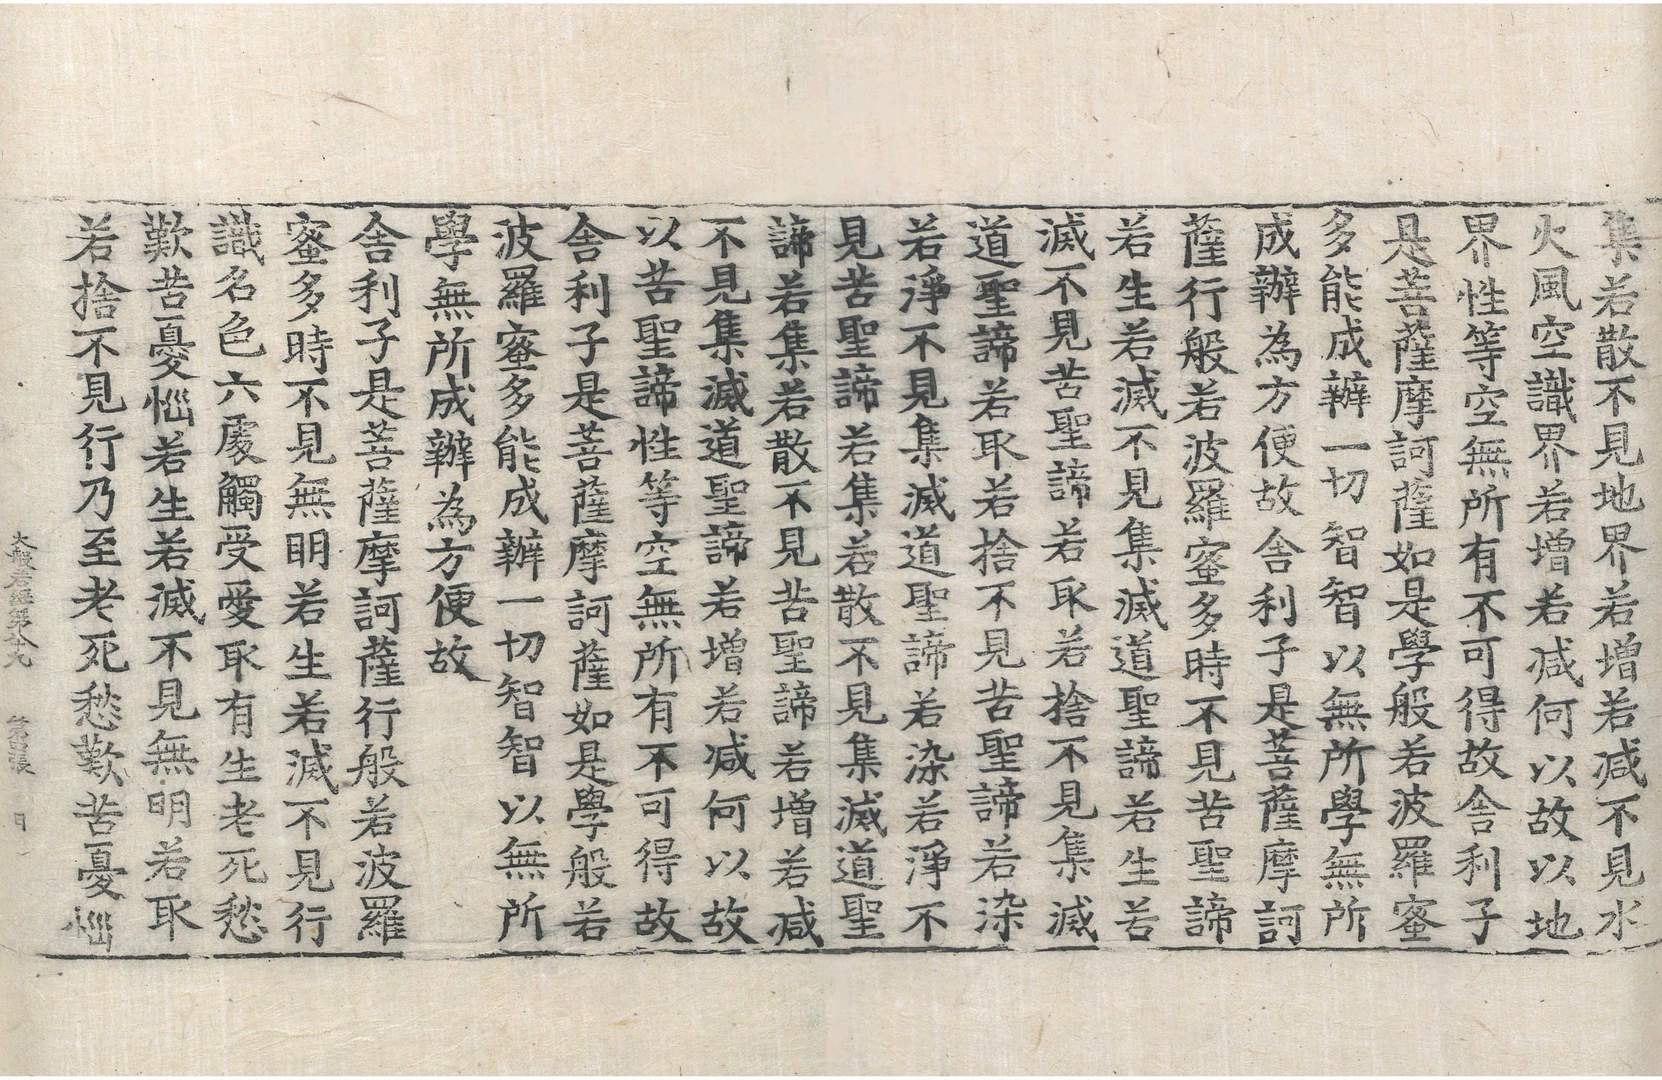 集若散不見地界若增若減不見水
火風空識界若增若減何以故以地
界性等空無所有不可得故舍利子
是菩薩摩訶薩如是學般若波羅蜜
多能成辦一切智智以無所學無所
成辦為方便故舍利子是菩薩摩訶
薩行般若波羅蜜多時不見苦聖諦
若生若滅不見集滅道聖諦若生若
滅不見苦聖諦若取若捨不見集滅
道聖諦若取若捨不見苦聖諦若染
若淨不見集滅道聖諦若染若淨不
見苦聖諦若集若散不見集滅道聖
諦若集若散不見苦聖諦若增若減
不見集滅道聖諦若增若減何以故
以苦聖諦性等空無所有不可得故
舍利子是菩薩摩訶薩如是學般若
波羅蜜多能成辦一切智智以無所
學無所成辦為方便故
舍利子是菩薩摩訶薩行般若波羅
蜜多時不見無明若生若滅不見行
識名色六處觸受愛取有生老死愁
歎苦憂惱若生若滅不見無明若取
若捨不見行乃至老死愁歎苦憂惱
大般若經第八十九 第張